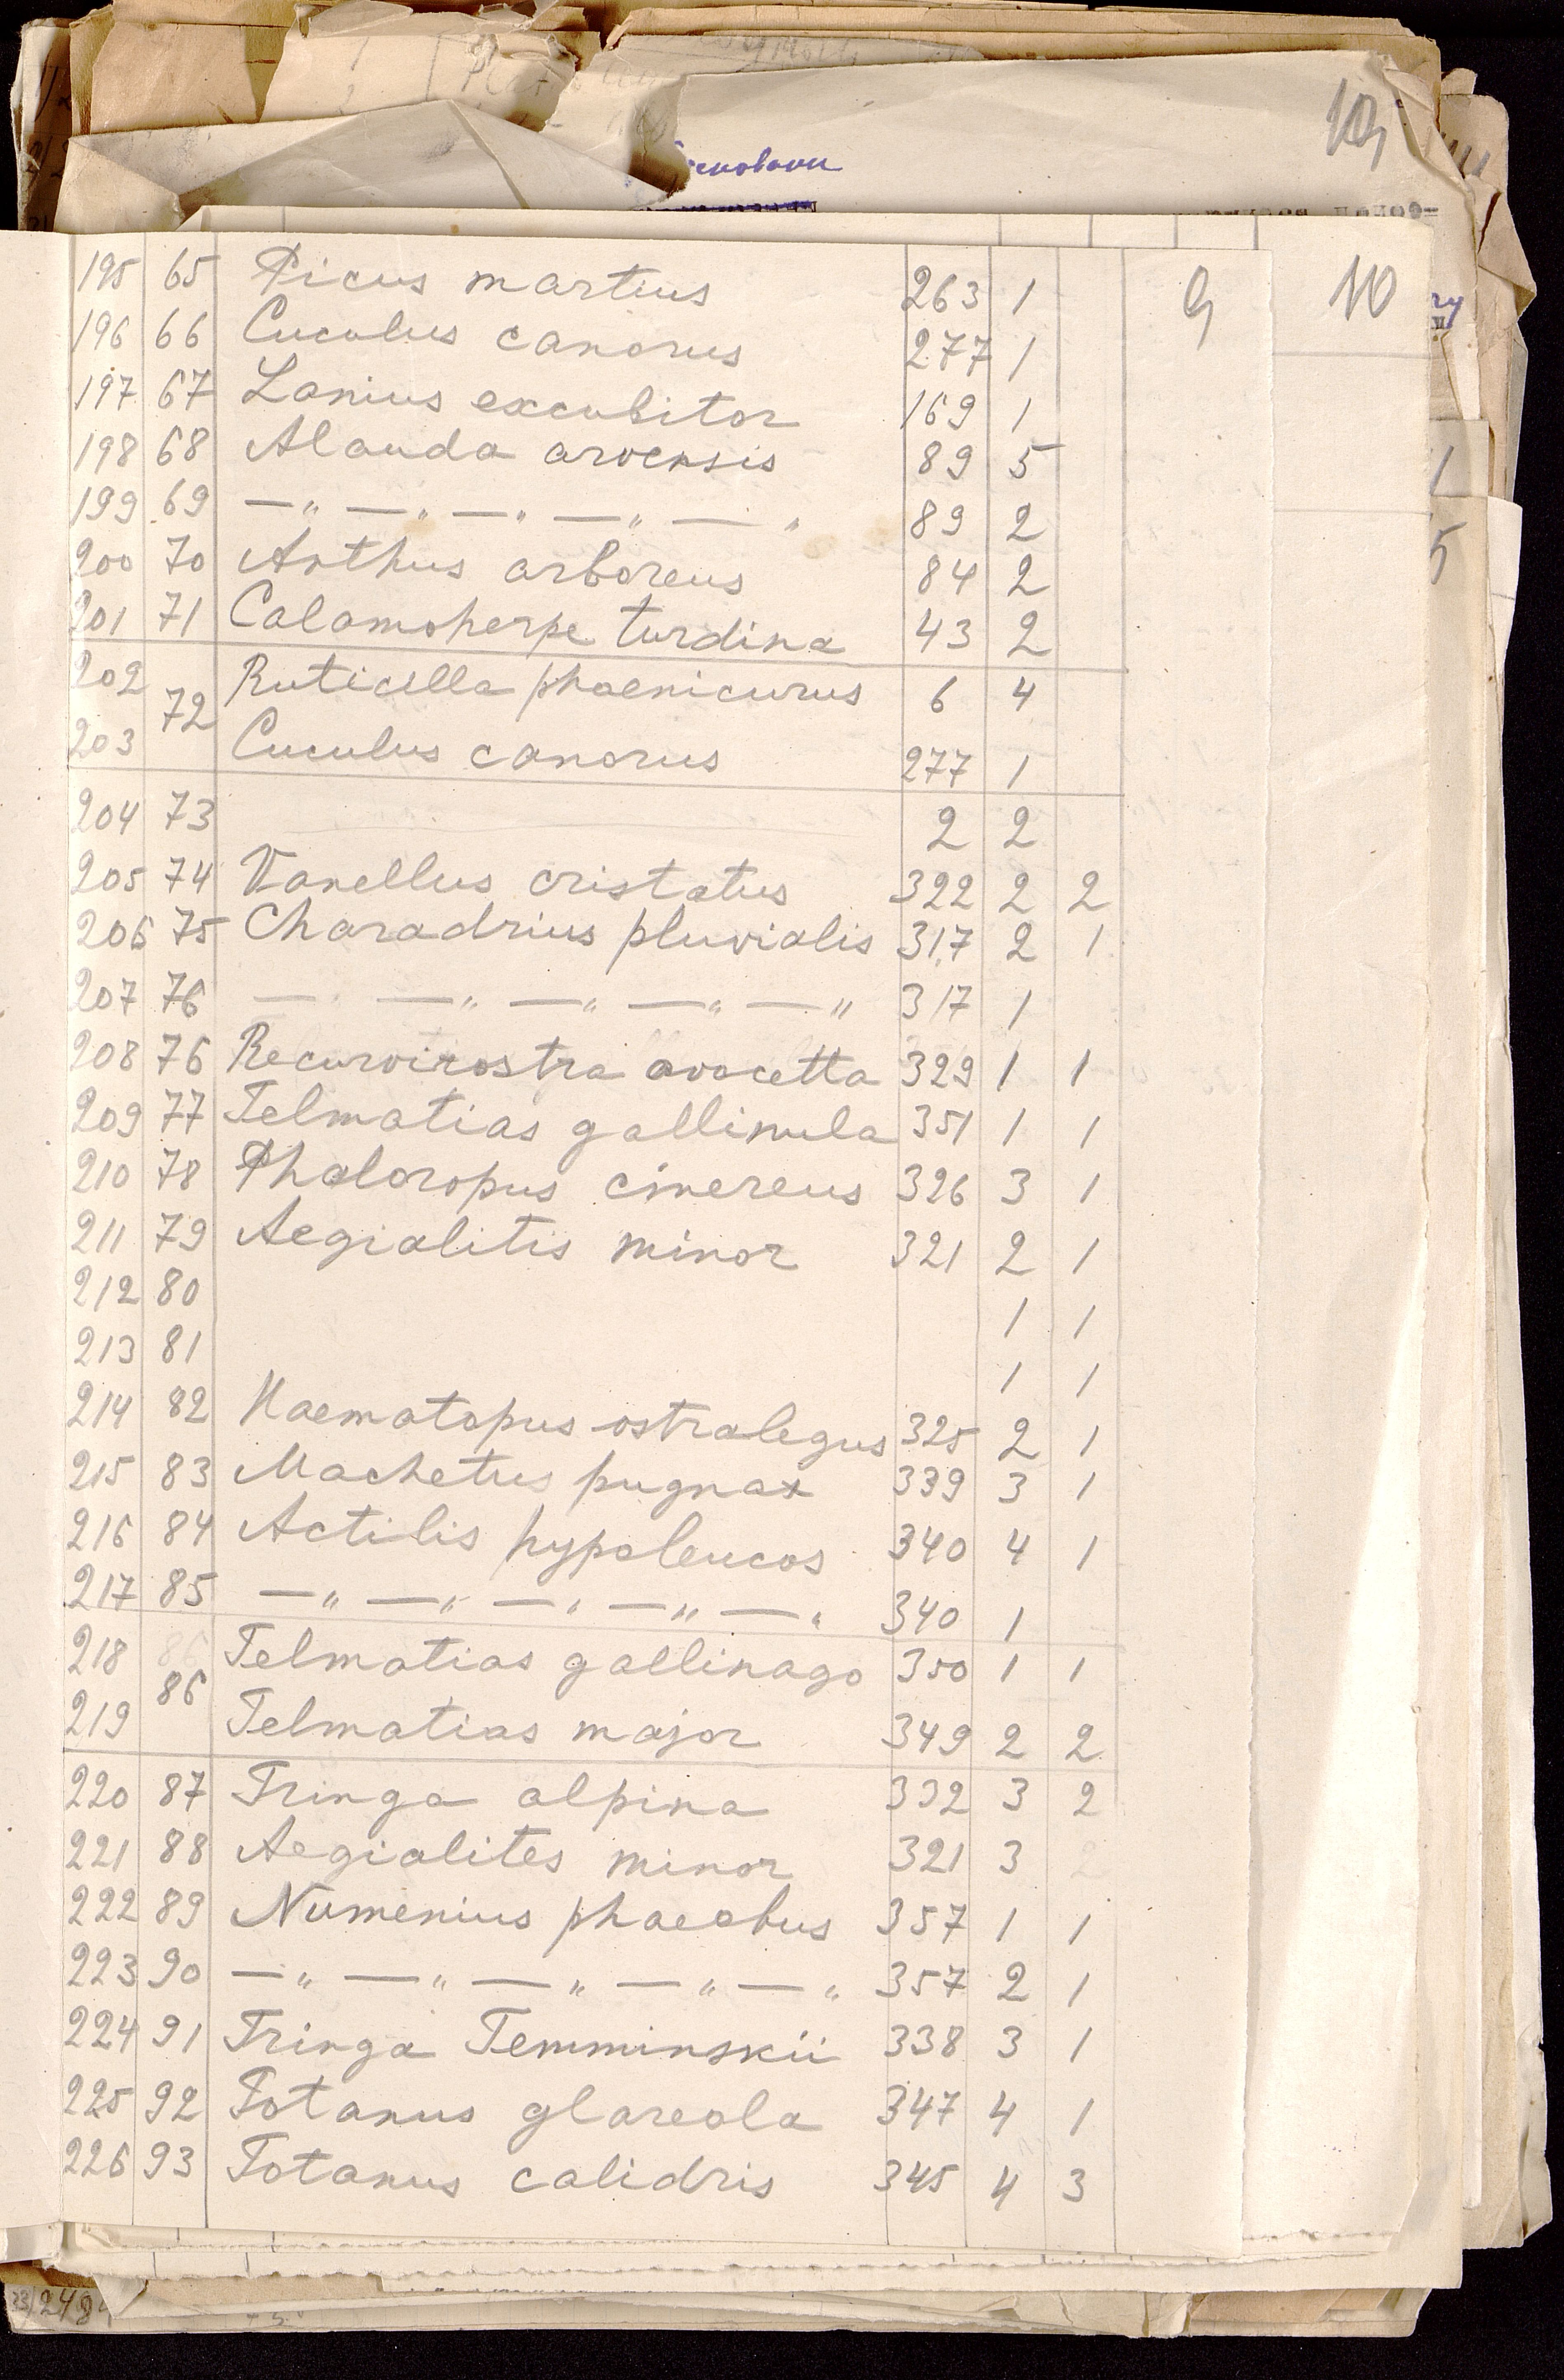 10
9
10
195 65 Picus martius 263 1
196 66 Cuculus canorus 277 1
197 67 Lanius excubitor 169 1
198 68 Alauda arvensis 89 5
199 69 —„ —„ —„ —„ —„ 89 2
200 70 Anthus arboreus 84 2
201 71 Calamoherpe turdina 43 2
202 72 Ruticella phaenicurus 6 4
203 Cuculus canorus 277 1
204 73 2 2
205 74 Vanellus cristatus 322 2 2
206 75 Charadrius pluvialis 317 2 1
207 76 —„ —„ —„ —„ —„ 317 1
208 76 Recurvirostra avocetta 329 1 1
209 77 Telmatias gallinula 351 1 1
210 78 Phaloropus cinereus 326 3 1
211 79 Aegialitis minor 321 2 1
212 80 1 1
213 81 1 1
214 82 Haematopus ostralegus 325 2 1
215 83 Machetus pugnax 339 3 1
216 84 Actilis hypoleucos 340 4 1
217 85 —„ —„ —„ —„ —„ 340 1
218 86 Telmatias gallinago 350 1 1
219 Telmatias major 349 2 2
220 87 Tringa alpina 332 3 2
221 88 Aegialites minor 321 3 2
222 89 Numenius phaeobus 357 1 1
223 90 —„ —„ —„ —„ —„ 357 2 1
224 91 Tringa Temminskii 338 3 1
225 92 Totanus glareola 347 4 1
226 93 Totanus calidris 345 4 3